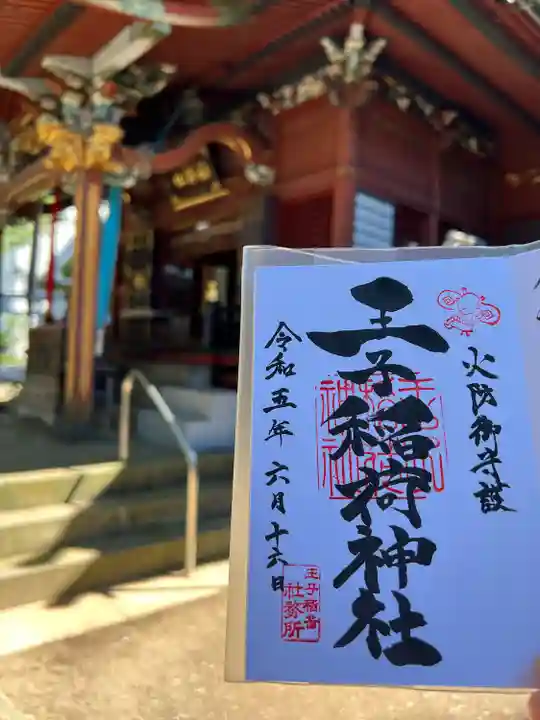 火防御守護
王子稲荷神社
令和五年 六月十六日
王子稲荷
社務所